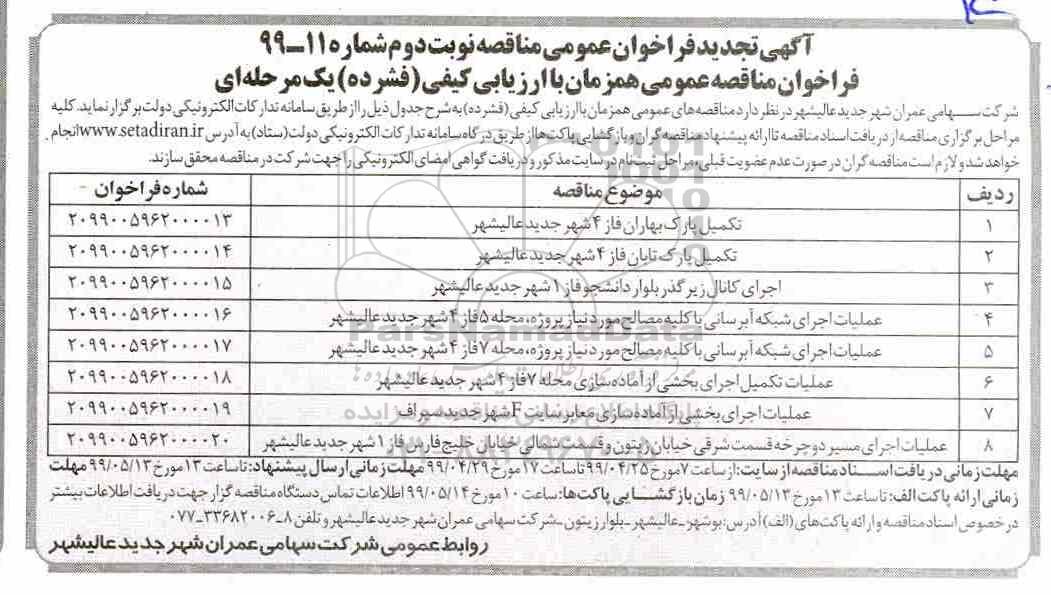 آگهی تجدید فراخوان عمومی مناقصه نوبت دوم شماره ۱۱-۹۹
فراخوان مناقصه عمومی همزمان با ارزیابی کیفی (فشرده) یک مرحله‌ای
شرکت سهامی عمران شهر جدید عالیشهر در نظر دارد مناقصه های عمومی همزمان با ارزیابی کیفی (فشرده) به شرح جدول ذیل را از طریق سامانه تدارکات الکترونیکی دولت برگزار نماید. کلیه
مراحل برگزاری مناقصه از دریافت اسناد مناقصه تا ارائه پیشنهاد مناقصه گران و بازگشایی پاکت ها از طریق درگاه سامانه تدارکات الکترونیکی دولت (ستاد) به آدرس www.setadiran.ir انجام
خواهد شد و لازم است مناقصه گران در صورت عدم عضویت قبلی، مراحل ثبت نام در سایت مذکور و دریافت گواهی امضای الکترونیکی را جهت شرکت در مناقصه محقق سازند.
ردیف موضوع مناقصه شماره فراخوان
۱ تکمیل پارک بهاران فاز ۴ شهر جدید عالیشهر ۲۰۹۹۰۰۵۹۶۲۰۰۰۰۱۳
۲ تکمیل پارک تابان فاز ۴ شهر جدید عالیشهر ۲۰۹۹۰۰۵۹۶۲۰۰۰۰۱۴
۳ اجرای کانال زیر گذر بلوار دانشجو فاز ۱ شهر جدید عالیشهر ۲۰۹۹۰۰۵۹۶۲۰۰۰۰۱۵
۴ عملیات اجرای شبکه آبرسانی با کلیه مصالح مورد نیاز پروژه، محله ۵ فاز ۴ شهر جدید عالیشهر ۲۰۹۹۰۰۵۹۶۲۰۰۰۰۱۶
۵ عملیات اجرای شبکه آبرسانی با کلیه مصالح مورد نیاز پروژه، محله ۷ فاز ۴ شهر جدید عالیشهر ۲۰۹۹۰۰۵۹۶۲۰۰۰۰۱۷
۶ عملیات تکمیل اجرای بخشی از آماده سازی محله ۷ فاز ۴ شهر جدید عالیشهر ۲۰۹۹۰۰۵۹۶۲۰۰۰۰۱۸
۷ عملیات اجرای بخشی از آماده سازی معابر سایت F شهر جدید سیراف ۲۰۹۹۰۰۵۹۶۲۰۰۰۰۱۹
۸ عملیات اجرای مسیر دوچرخه قسمت شرقی خیابان زیتون و قسمت شمالی خیابان خلیج فارس فاز ۱ شهر جدید عالیشهر ۲۰۹۹۰۰۵۹۶۲۰۰۰۰۲۰
مهلت زمانی دریافت اسناد مناقصه از سایت: از ساعت ۷ مورخ ۹۹/۰۴/۲۵ تا ساعت ۱۷ مورخ ۹۹/۰۴/۲۹ مهلت زمانی ارسال پیشنهاد: تا ساعت ۱۳ مورخ ۹۹/۰۵/۱۳ مهلت
زمانی ارائه پاکت الف: تا ساعت ۱۳ مورخ ۹۹/۰۵/۱۳ زمان بازگشایی پاکت ها: ساعت ۱۰ مورخ ۹۹/۰۵/۱۴ اطلاعات تماس دستگاه مناقصه گزار جهت دریافت اطلاعات بیشتر
در خصوص اسناد مناقصه و ارائه پاکت های (الف) آدرس: بوشهر-عالیشهر-بلوار زیتون-شرکت سهامی عمران شهر جدید عالیشهر و تلفن ۸-۳۳۶۸۲۰۰۶-۰۷۷
روابط عمومی شرکت سهامی عمران شهر جدید عالیشهر
ParsNamadData